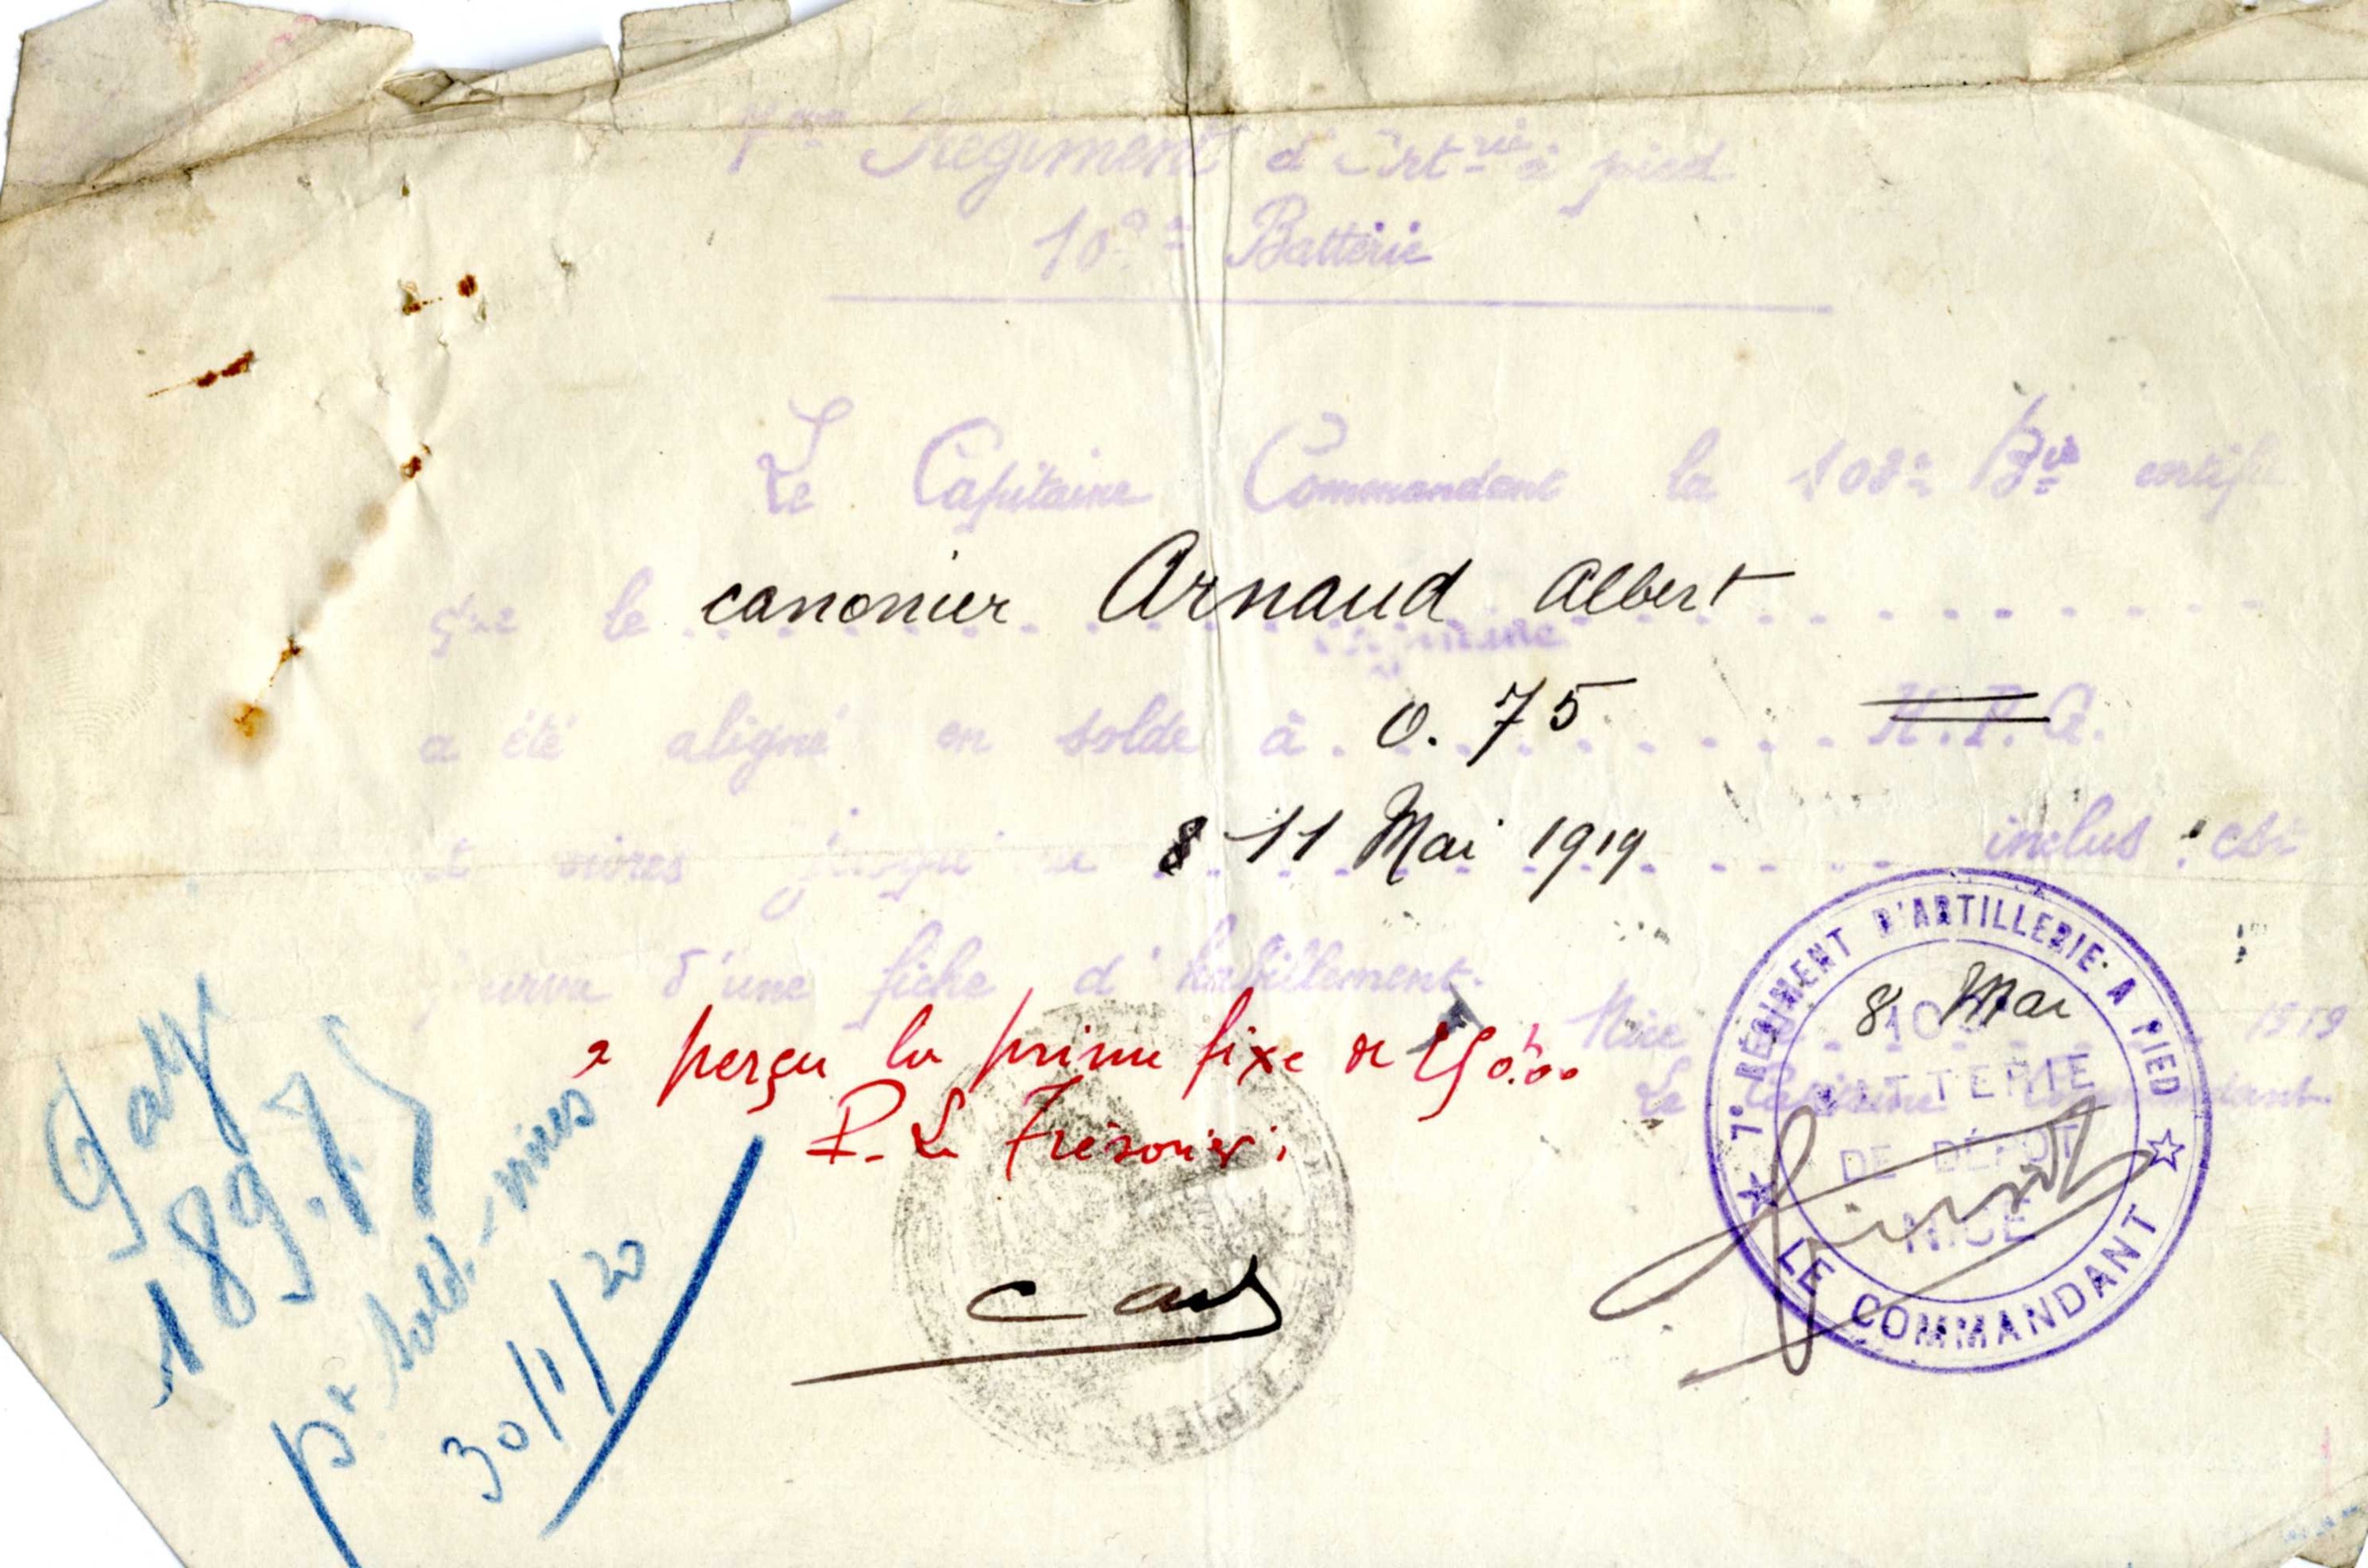 7ème Regiment d'Art-rie à pied
10 Batterie
Le Capitaine Commandant la 108e Bie certifie
que le canonier Arnaud Albert
a été aligné en solde à 0.75 H.P.G.
et vivres jusqu'au 11 Mai 1919 inclus est
pourvu d'une fiche d'habillement.
Nice 8 Mai 1919
Le Capitaine Commandant
a perçu la prime fixe de
P. Le Trésorier:
7e REGIMENT D'ARTILLERIE A PIED
BATTERIE
DE DÉPOT
NICE
LE COMMANDANT
PIED
189.
pr sold. vivres
30/1/20